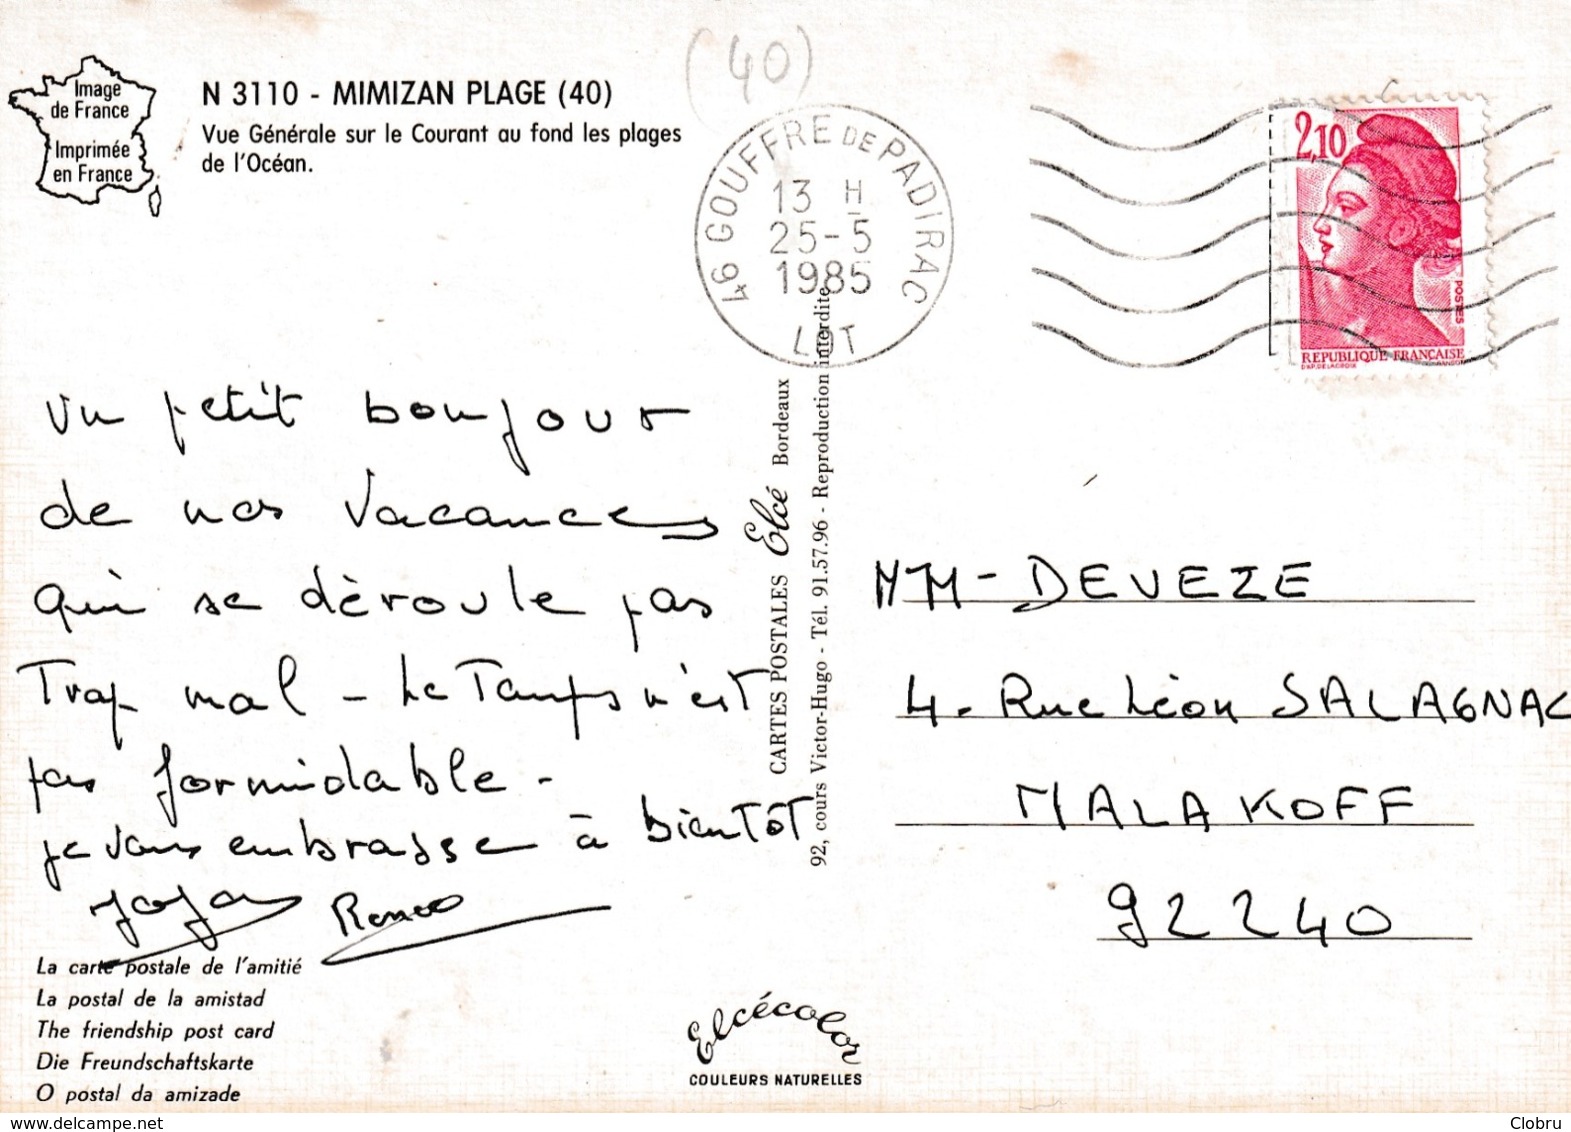 (40)
Image
de France
Imprimée
en France
N 3110 - MIMIZAN PLAGE (40)
Vue Générale sur le Courant au fond les plages
de l'Océan.
46 GOUFFRE DE PADIRAC
13 H
25-5
1985
LOT
2,10
POSTES
REPUBLIQUE FRANÇAISE
D'AP. DELACROIX
GANDON
Un petit bonjour
de nos vacances
qui se déroule pas
Trop mal - Le Temps n'est
pas formidable -
je vous embrasse à bientôt
Jojo
CARTES POSTALES Elcé Bordeaux
92, cours Victor-Hugo - Tél. 91.57.96 - Reproduction interdite
MM - DEVEZE
4. Rue Léon SALAGNAC
MALAKOFF
92240
La carte postale de l'amitié
La postal de la amistad
The friendship post card
Die Freundschaftskarte
O postal da amizade
Elcécolor
COULEURS NATURELLES
www.delcampe.net
Clobru